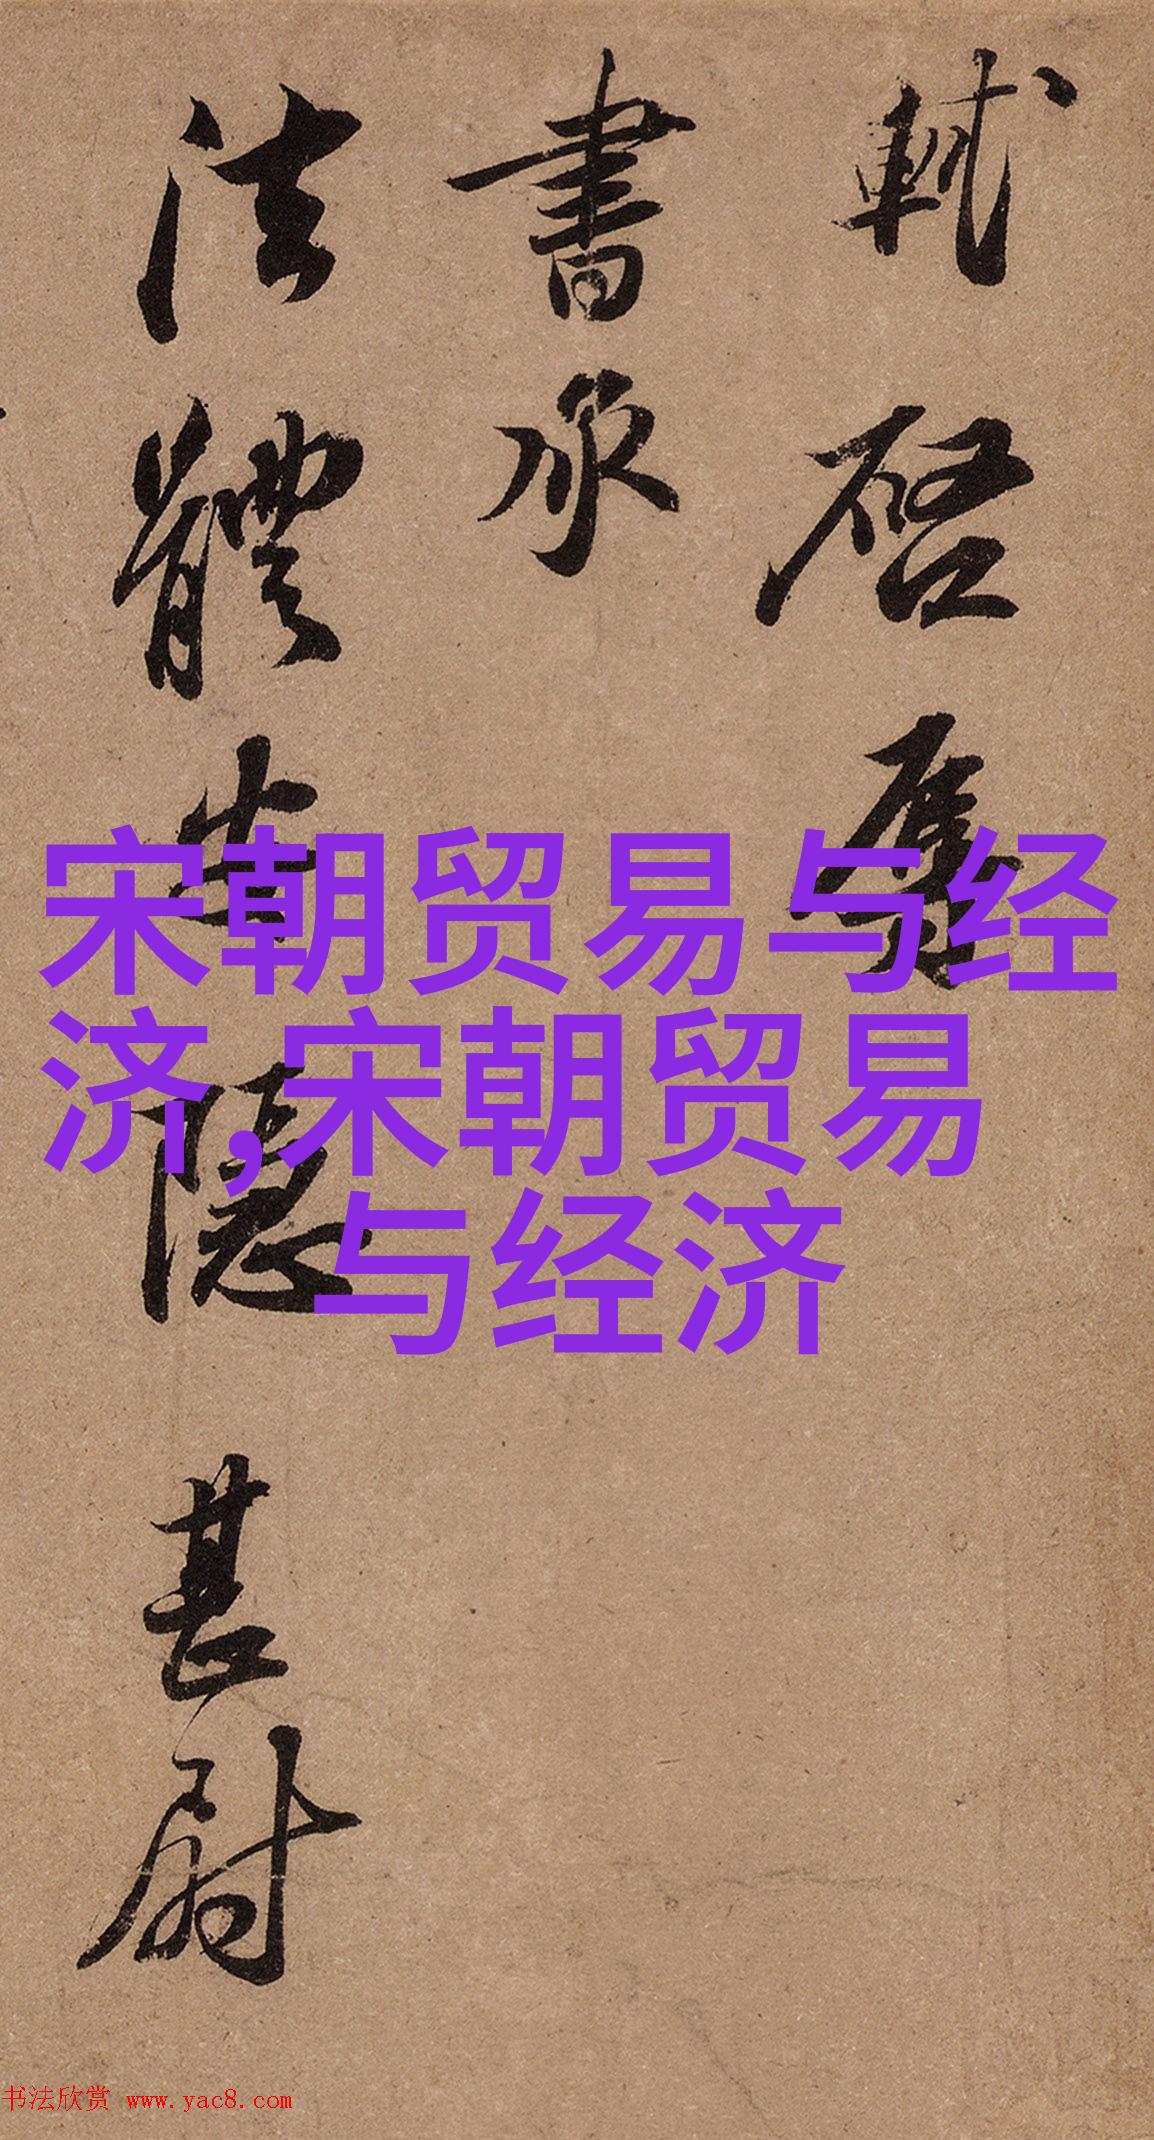 軾啓辱
書承
法體安隱甚慰
宋朝贸易与经
济,宋朝贸易
与经济
书法欣赏 www.yac8.com